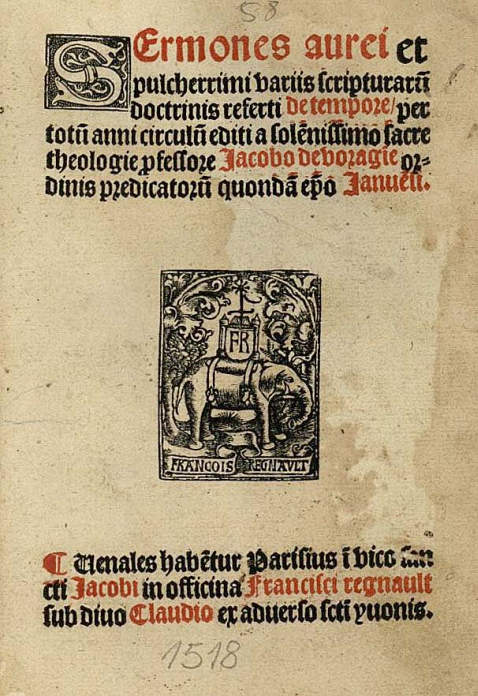 58
Sermones aurei et
pulcherrimi variis scripturarū
doctrinis referti de tempore/per
totū anni circulū editi a solēnissimo sacre
theologie ꝓfessore Jacobo de voragie or⸗
dinis predicatorū quondā ep̄o Januēſi.
FR
FRANCOIS REGNAVLT
¶ Uenales habētur Parisius ī vico san
cti Jacobi in officina Francisci regnault
sub diuo Claudio ex aduerso scti yuonis.
1518